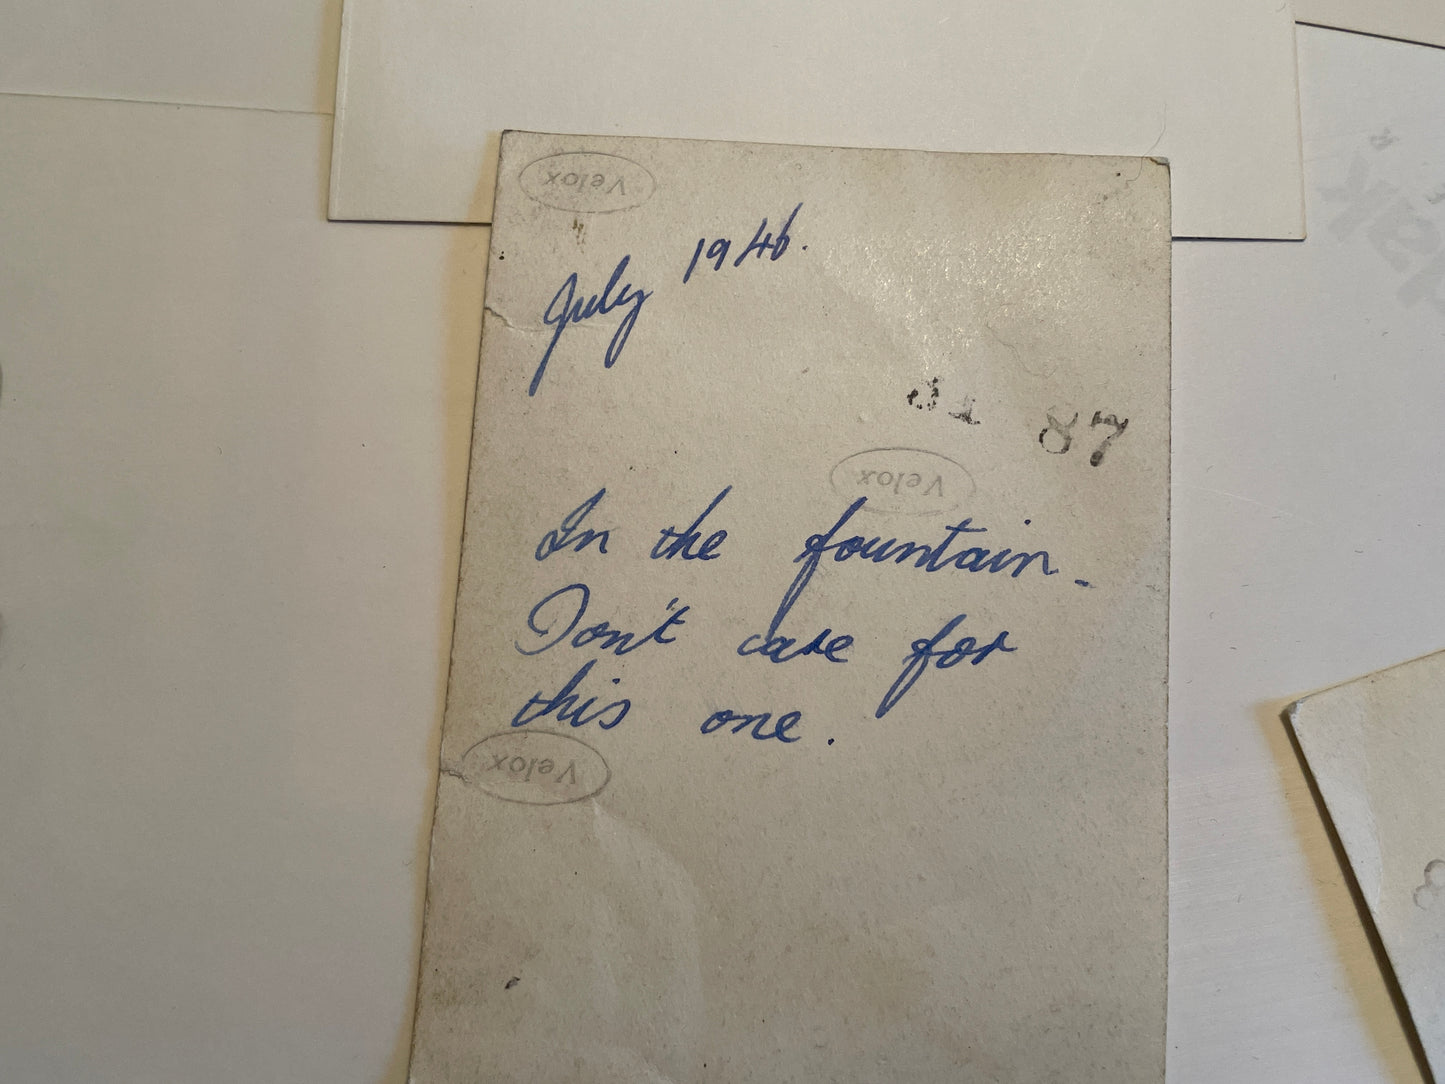 Velox
July 1946.
87
Velox
In the fountain.
Don't care for
this one.
Velox